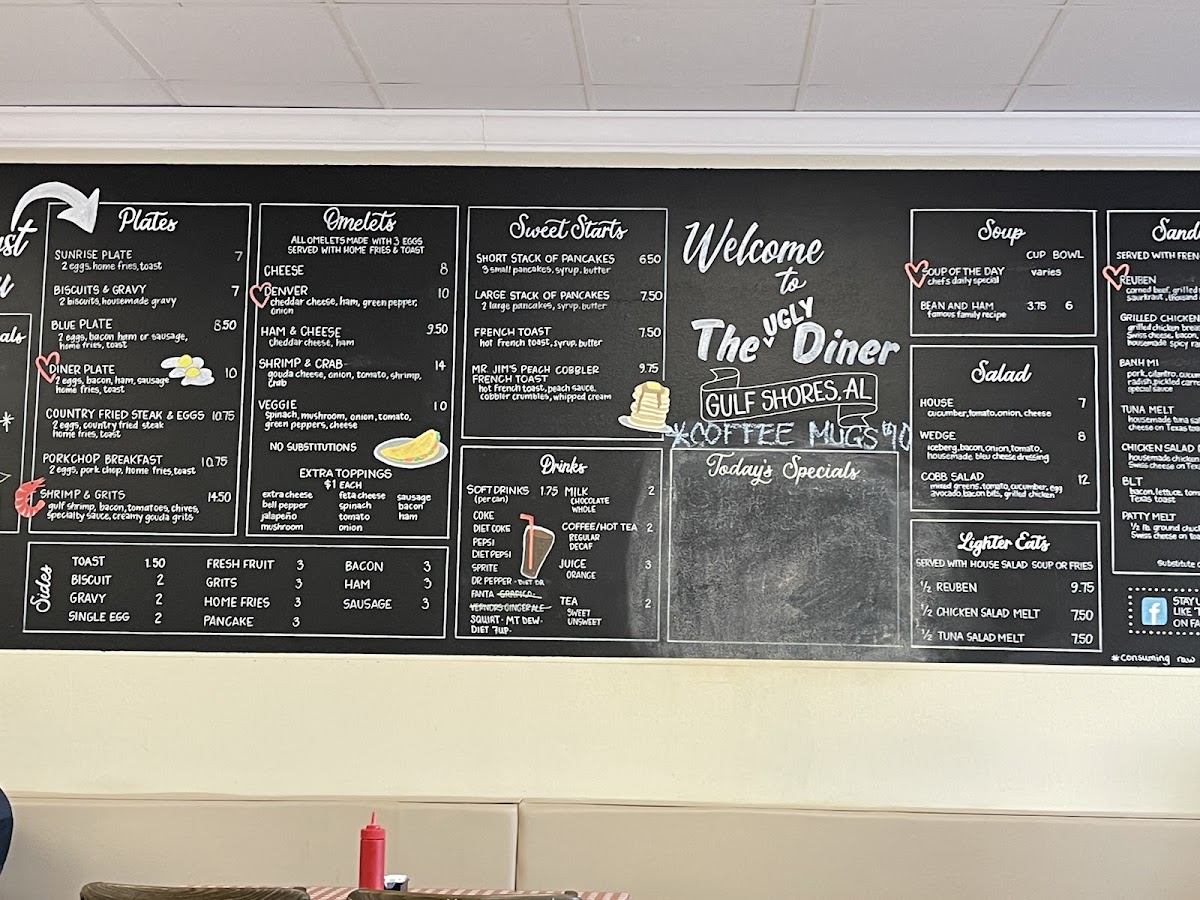 Plates
SUNRISE PLATE 7
2 eggs, home fries, toast
BISCUITS & GRAVY 7
2 biscuits, housemade gravy
BLUE PLATE 8.50
2 eggs, bacon ham or sausage,
home fries, toast
DINER PLATE 10
2 eggs, bacon, ham, sausage
home fries, toast
COUNTRY FRIED STEAK & EGGS 10.75
2 eggs, country fried steak
home fries, toast
PORKCHOP BREAKFAST 10.75
2 eggs, pork chop, home fries, toast
SHRIMP & GRITS 14.50
gulf shrimp, bacon, tomatoes, chives,
specialty sauce, creamy gouda grits
Omelets
ALL OMELETS MADE WITH 3 EGGS
SERVED WITH HOME FRIES & TOAST
CHEESE 8
DENVER 10
cheddar cheese, ham, green pepper,
onion
HAM & CHEESE 9.50
cheddar cheese, ham
SHRIMP & CRAB- 14
gouda cheese, onion, tomato, shrimp,
crab
VEGGIE 10
spinach, mushroom, onion, tomato,
green peppers, cheese
NO SUBSTITUTIONS
EXTRA TOPPINGS
$1 EACH
extra cheese feta cheese sausage
bell pepper spinach bacon
jalapeño tomato ham
mushroom onion
Sides
TOAST 1.50 FRESH FRUIT 3 BACON 3
BISCUIT 2 GRITS 3 HAM 3
GRAVY 2 HOME FRIES 3 SAUSAGE 3
SINGLE EGG 2 PANCAKE 3
Sweet Starts
SHORT STACK OF PANCAKES 6.50
3 small pancakes, syrup, butter
LARGE STACK OF PANCAKES 7.50
2 large pancakes, syrup, butter
FRENCH TOAST 7.50
hot French toast, syrup, butter
MR. JIM'S PEACH COBBLER 9.75
FRENCH TOAST
hot French toast, peach sauce,
cobbler crumbles, whipped cream
Drinks
SOFT DRINKS 1.75
(per can)
COKE
DIET COKE
PEPSI
DIET PEPSI
SPRITE
DR PEPPER - DIET DR
FANTA
VERNORS GINGER ALE
SQUIRT - MT DEW -
DIET 7UP -
MILK 2
CHOCOLATE
WHOLE
COFFEE/HOT TEA 2
REGULAR
DECAF
JUICE 3
ORANGE
TEA 2
SWEET
UNSWEET
Welcome
to
The UGLY Diner
GULF SHORES, AL
*COFFEE MUGS $10
Today's Specials
Soup
CUP BOWL
SOUP OF THE DAY varies
chef's daily special
BEAN AND HAM 3.75 6
famous family recipe
Salad
HOUSE 7
cucumber, tomato, onion, cheese
WEDGE 8
iceberg, bacon, onion, tomato,
housemade, bleu cheese dressing
COBB SALAD 12
mixed greens, tomato, cucumber, egg
avocado, bacon bits, grilled chicken
Lighter Eats
SERVED WITH HOUSE SALAD SOUP OR FRIES
½ REUBEN 9.75
½ CHICKEN SALAD MELT 7.50
½ TUNA SALAD MELT 7.50
SERVED WITH
REUBEN
corned beef, grilled
sauerkraut, thousand
GRILLED CHICKEN
grilled chicken
Swiss cheese, bacon,
housemade spicy
BANH MI
pork, cilantro,
radish, pickled
special sauce
TUNA MELT
housemade tuna
cheese on Texas
CHICKEN SALAD
housemade chicken
Swiss cheese on
BLT
bacon, lettuce,
Texas toast
PATTY MELT
½ lb. ground
Swiss cheese on
Substitute
f STAY
LIKE
ON
*consuming raw